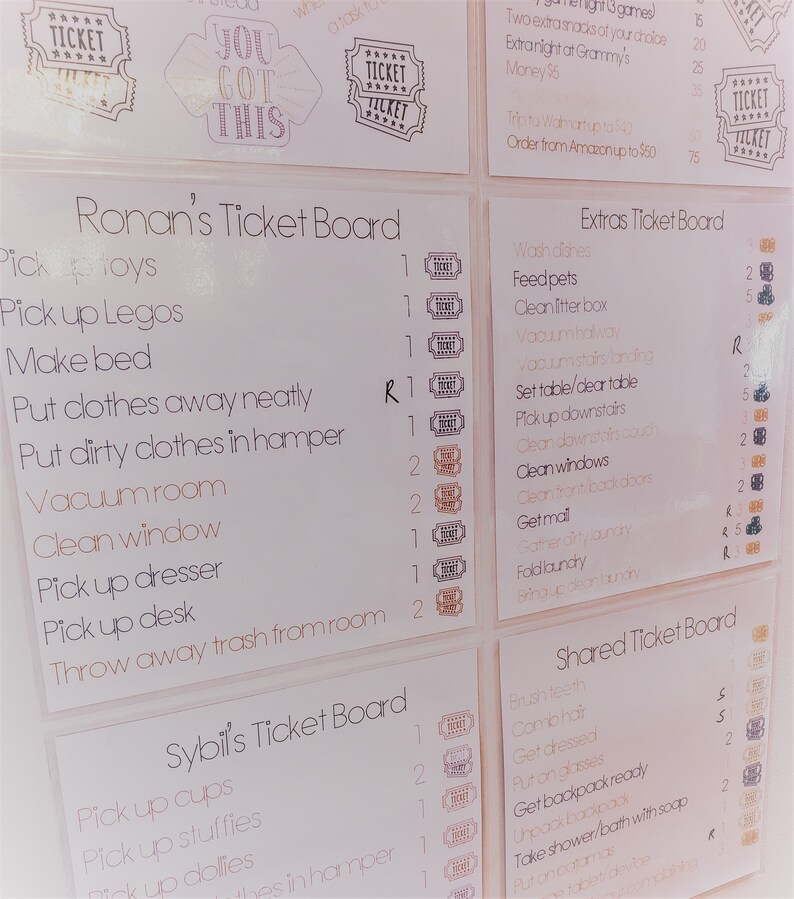 instead
a task to
TICKET
TICKET
YOU
GOT
THIS
TICKET
TICKET
game night (3 games)
15
Two extra snacks of your choice
20
Extra night at Grammy's
25
Money $5
35
Trip to Walmart up to $40
60
Order from Amazon up to $50
75
TICKET
TICKET
Ronan's Ticket Board
Pick up toys 1 TICKET
Pick up Legos 1 TICKET
Make bed 1 TICKET
Put clothes away neatly R 1 TICKET
Put dirty clothes in hamper 1 TICKET
Vacuum room 2 TICKET
Clean window 2 TICKET
Pick up dresser 1 TICKET
Pick up desk 1 TICKET
Throw away trash from room 2 TICKET
Extras Ticket Board
Wash dishes 3
Feed pets 2
Clean litter box 5
Vacuum hallway 3
Vacuum stairs/landing R
Set table/clear table 2
Pick up downstairs 5
Clean downstairs couch 3
Clean windows 2
Clean front/back doors 3
Get mail 2
Gather dirty laundry R 3
Fold laundry R 5
Bring up clean laundry R 3
Sybil's Ticket Board
Pick up cups 1 TICKET
Pick up stuffies 2 TICKET
Pick up dollies 1 TICKET
clothes in hamper 1 TICKET
1
Shared Ticket Board
Brush teeth
Comb hair S
Get dressed S
Put on glasses
Get backpack ready 2
Unpack backpack
Take shower/bath with soap 2
Put on pajamas
tablet/device R
without complaining